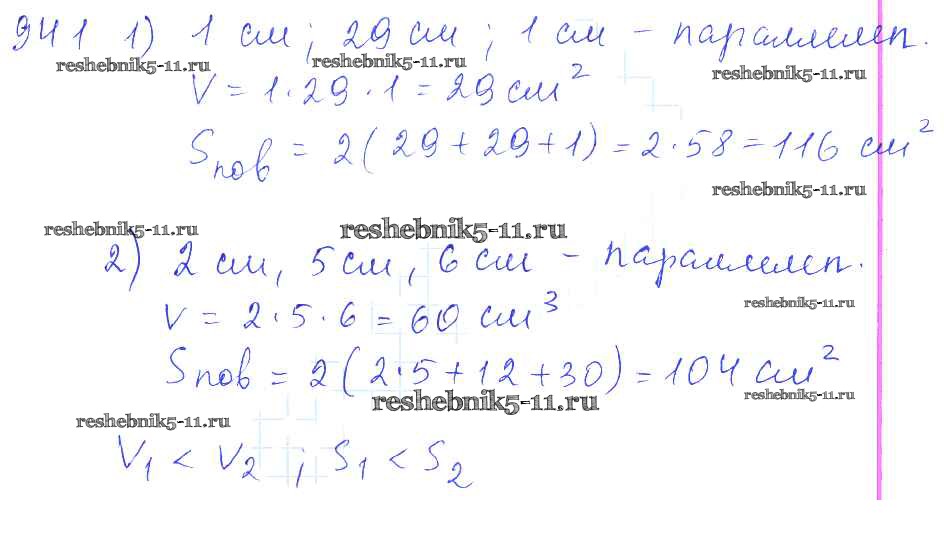 941 1) 1 см; 29 см; 1 см - параллелеп.
reshebnik5-11.ru reshebnik5-11.ru reshebnik5-11.ru
V = 1·29·1 = 29 см²
Sпов = 2(29+29+1) = 2·58 = 116 см²
reshebnik5-11.ru
reshebnik5-11.ru reshebnik5-11.ru
2) 2 см, 5 см, 6 см - параллелеп.
reshebnik5-11.ru
V = 2·5·6 = 60 см³
Sпов = 2(2·5+12+30) = 104 см²
reshebnik5-11.ru reshebnik5-11.ru
reshebnik5-11.ru
V₁ < V₂ ; S₁ < S₂